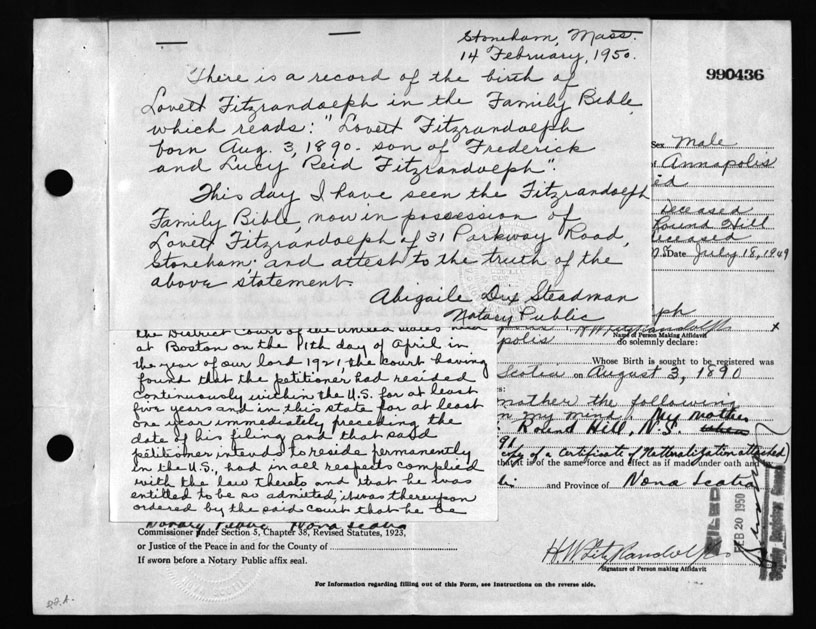 Stoneham, Mass.
14 February, 1950.
There is a record of the birth of
Lovett Fitzrandolph in the Family Bible,
which reads: "Lovett Fitzrandolph
born Aug. 3, 1890 - son of Frederick
and Lucy Reid Fitzrandolph".
This day I have seen the Fitzrandolph
Family Bible, now in possession of
Lovett Fitzrandolph of 31 Parkway Road,
Stoneham, and attest to the truth of the
above statement.
Abigaile Dix Steadman
Notary Public
990436
Sex Male
Annapolis
Deceased
Round Hill
Deceased
Date July 18, 1949
ph
H W FitzRandolph x
Name of Person Making Affidavit
polis
do solemnly declare:
Whose Birth is sought to be registered was
Scotia on August 3, 1890
mother the following
in my mind. My mother
Round Hill, N.S. when
91
copy of a Certificate of Naturalization attached)
that it is of the same force and effect as if made under oath and
and Province of Nova Scotia
the District Court of the United States held
at Boston on the 11th day of April in
the year of our lord 1921, the court having
found that the petitioner had resided
continuously within the U.S. for at least
five years and in this state for at least
one year immediately preceding the
date of his filing and that said
petitioner intends to reside permanently
in the U.S., had in all respects complied
with the law thereto and that he was
entitled to be so admitted, it was thereupon
ordered by the said court that he be
Notary Public Nova Scotia
Commissioner under Section 5, Chapter 38, Revised Statutes, 1923,
or Justice of the Peace in and for the County of
If sworn before a Notary Public affix seal.
H. W. FitzRandolph
Signature of Person making Affidavit
FILED
FEB 20 1950
For Information regarding filling out of this Form, see Instructions on the reverse side.